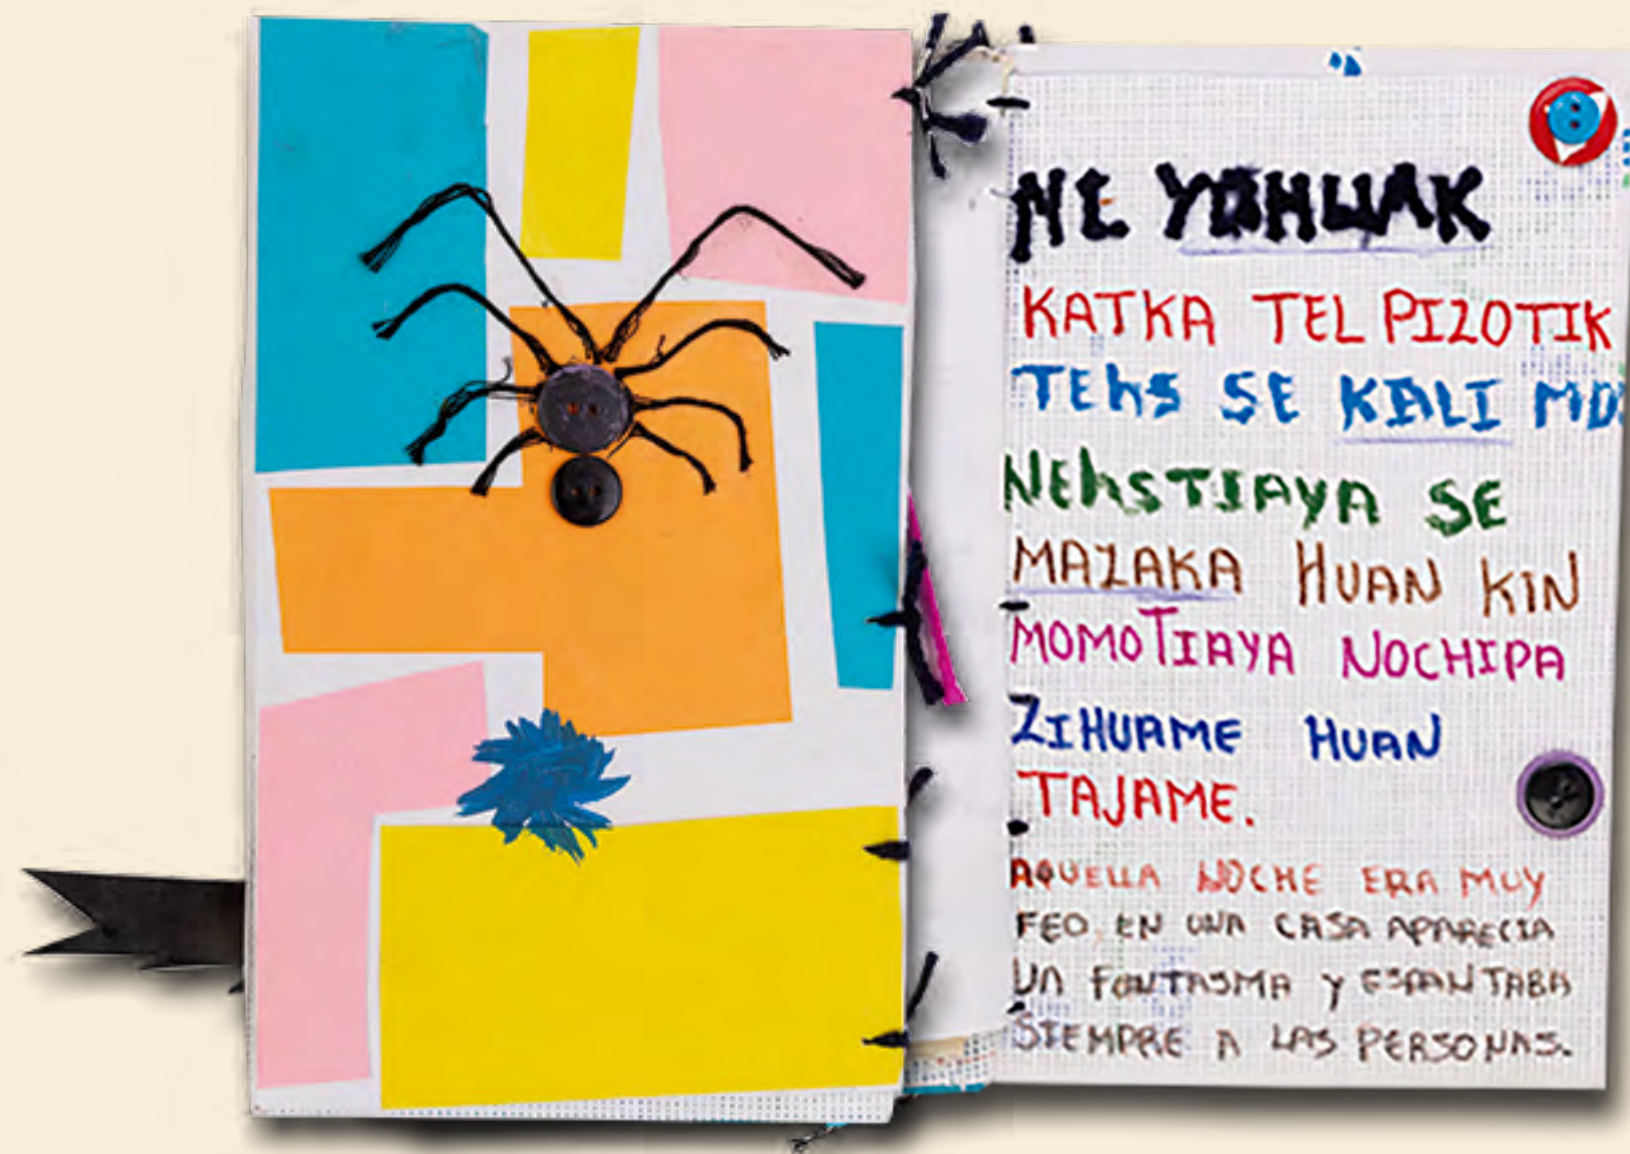 NE YOHUAK
KATKA TEL PIZOTIK
TEKS SE KALI MO
NEKSTIAYA SE
MAZAKA HUAN KIN
MOMOTIAYA NOCHIPA
ZIHUAME HUAN
TAJAME.
AQUELLA NOCHE ERA MUY
FEO, EN UNA CASA APARECIA
UN FANTASMA Y ESPANTABA
SIEMPRE A LAS PERSONAS.